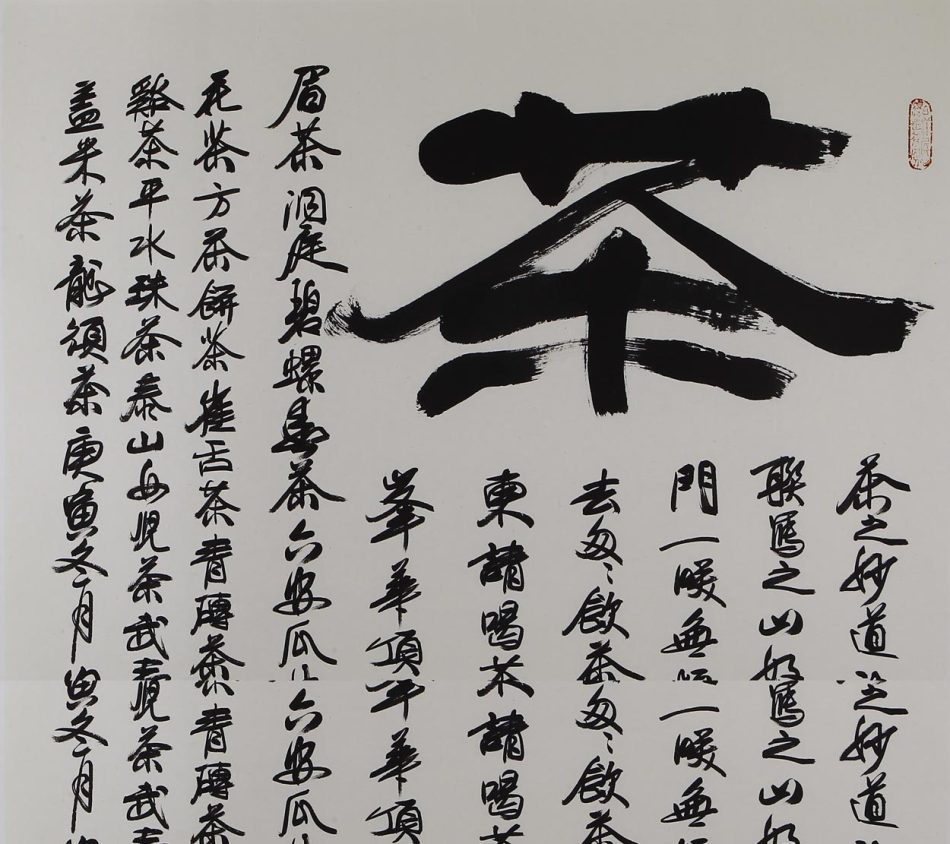 茶
茶之妙道之妙道
聯寫之山寫之山
門一暖無一暖無
去匆〻飲茶匆〻飲茶
東請喝茶請喝茶
峯華頂華頂
眉茶洞庭碧螺春茶六安瓜六安瓜
花茶方茶餅茶雀舌茶青磚茶青磚茶
谿茶平水珠茶泰山女兒茶武兒茶武
蓋米茶龍須茶庚寅冬月寅冬月